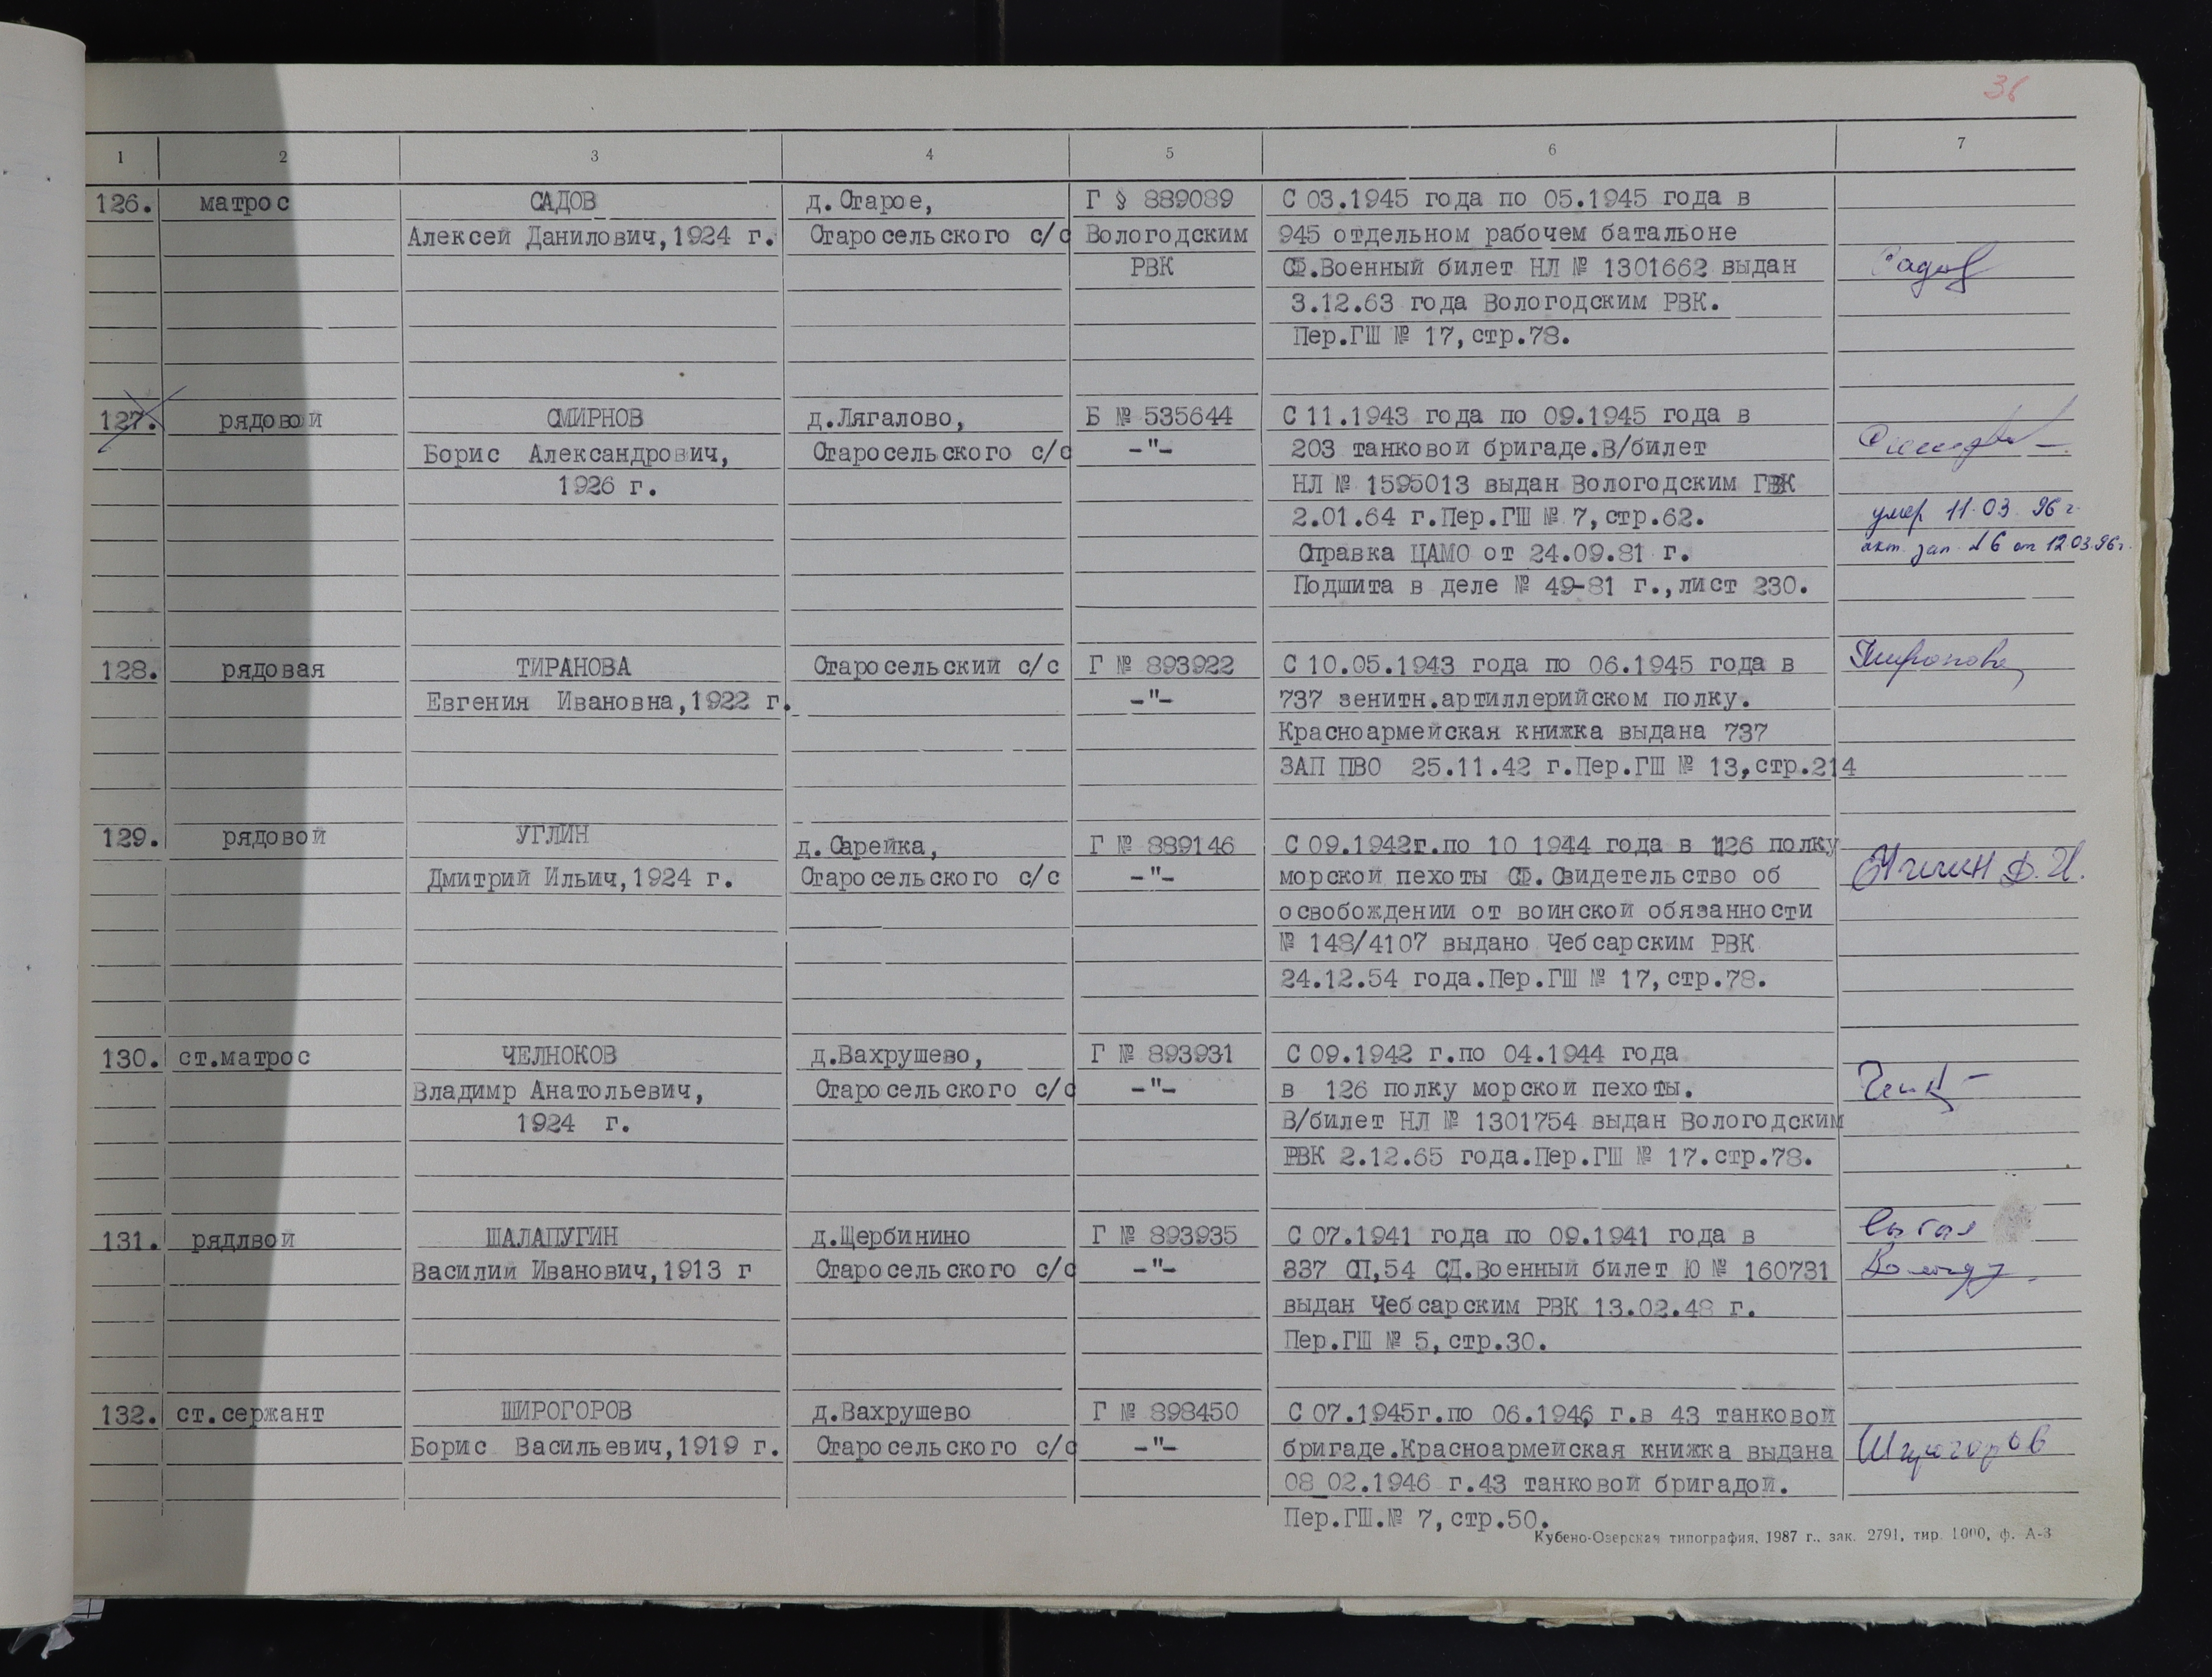 36
1 2 3 4 5 6 7
126. матрос САДОВ д.Старое, Г § 889089 С 03.1945 года по 05.1945 года в
Алексей Данилович,1924 г. Старосельского с/с Вологодским 945 отдельном рабочем батальоне
РВК СФ.Военный билет НЛ № 1301662 выдан Садов
3.12.63 года Вологодским РВК.
Пер.ГШ № 17,стр.78.
127. рядовой СМИРНОВ д.Лягалово, Б № 535644 С 11.1943 года по 09.1945 года в
Борис Александрович, Старосельского с/с -"- 203 танковой бригаде.В/билет
1926 г. НЛ № 1595013 выдан Вологодским ГВК
2.01.64 г.Пер.ГШ № 7,стр.62. умер 11.03.96 г.
Справка ЦАМО от 24.09.81 г. акт. зап. №6 от 12.03.96г.
Подшита в деле № 49-81 г.,лист 230.
128. рядовая ТИРАНОВА Старосельский с/с Г № 893922 С 10.05.1943 года по 06.1945 года в Тиранова
Евгения Ивановна,1922 г. -"- 737 зенитн.артиллерийском полку.
Красноармейская книжка выдана 737
ЗАП ПВО 25.11.42 г.Пер.ГШ № 13,стр.214
129. рядовой УГЛИН д.Сарейка, Г № 889146 С 09.1942г.по 10 1944 года в 126 полку
Дмитрий Ильич,1924 г. Старосельского с/с -"- морской пехоты СФ.Свидетельство об Д.И.
освобождении от воинской обязанности
№ 148/4107 выдано Чебсарским РВК
24.12.54 года.Пер.ГШ № 17,стр.78.
130. ст.матрос ЧЕЛНОКОВ д.Вахрушево, Г № 893931 С 09.1942 г.по 04.1944 года
Владимр Анатольевич, Старосельского с/с -"- в 126 полку морской пехоты.
1924 г. В/билет НЛ № 1301754 выдан Вологодским
РВК 2.12.65 года.Пер.ГШ № 17.стр.78.
131. рядлвой ШАЛАПУГИН д.Щербинино Г № 893935 С 07.1941 года по 09.1941 года в
Василий Иванович,1913 г Старосельского с/с -"- 837 СП,54 СД.Военный билет Ю № 160731 Вологду
выдан Чебсарским РВК 13.02.48 г.
Пер.ГШ № 5,стр.30.
132. ст.сержант ШИРОГОРОВ д.Вахрушево Г № 898450 С 07.1945г.по 06.1946 г.в 43 танковой
Борис Васильевич,1919 г. Старосельского с/с -"- бригаде.Красноармейская книжка выдана Широгоров
08_02.1946 г.43 танковой бригадой.
Пер.ГШ.№ 7,стр.50.
Кубено-Озерская типография, 1987 г., зак. 2791, тир. 1000, ф. А-3